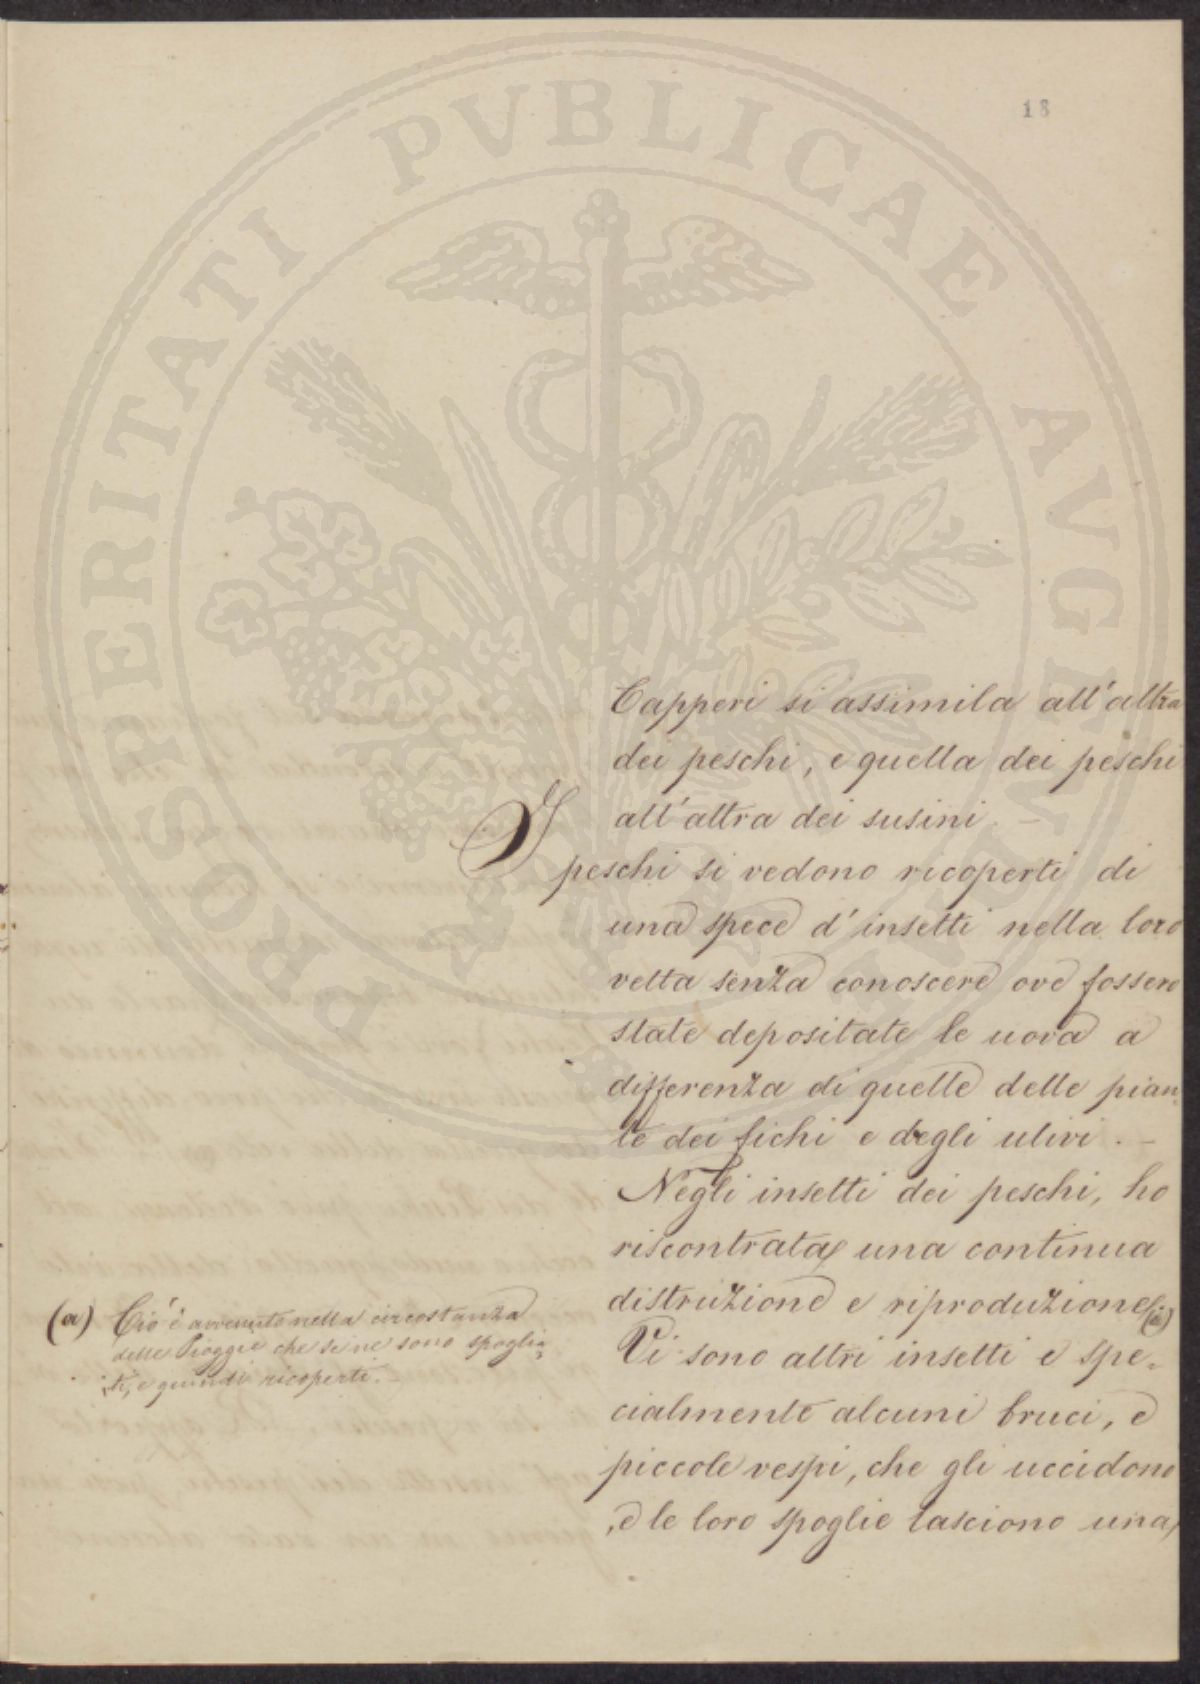 18
PROSPERITATI PVBLICAE AVGENDAE
Capperi si assimila all'altra
dei peschi, e quella dei peschi
all'altra dei susini. —
I peschi si vedono ricoperti di
una spece d'insetti nella loro
vetta senza conoscere ove fossero
state depositate le uova a
differenza di quelle delle pian-
te dei fichi e degli ulivi. —
Negli insetti dei peschi, ho
riscontrata una continua
distruzione e riproduzione (a)
Vi sono altri insetti e spe-
cialmente alcuni bruci, e
piccole vespi, che gli uccidono
, e le loro spoglie lasciono una
(a) Ciò è avvenuto nella circostanza
delle Pioggie che se ne sono spoglia-
ti, e quindi ricoperti. —